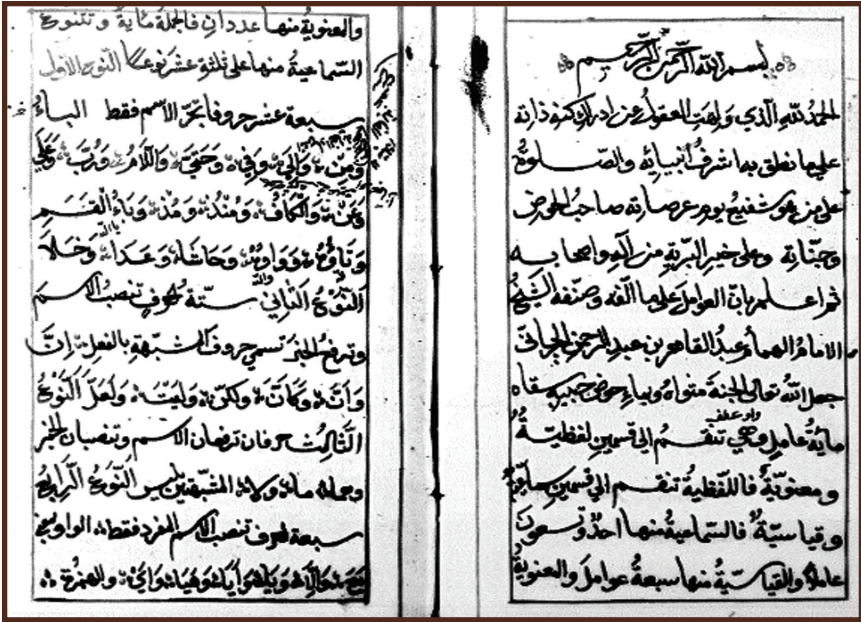 بسم الله الرحمن الرحيم
الحمد لله الذي ولهت العقول عن ادراك كنه ذاته
على ما نطق به اشرف أنبيائه والصلوة
على من هو شفيع يوم عرصاته صاحب الحوض
وجناته وعلى خير البرية من آله واصحابه
ثم اعلم بان العوامل على ما الفه وصنفه الشيخ
الامام الهمام عبد القاهر بن عبد الرحمن الجرجاني
جعل الله تعالى الجنة مثواه وبماء حوض حبيبه سقاه
واو عطف
مائة عامل وهي تنقسم الى قسمين لفظية
ومعنوية فاللفظية تنقسم الى قسمين سماعية
وقياسية فالسماعية منها احد وتسعون
عاملا والقياسية منها سبعة عوامل والمعنوية
والمعنوية منها عددان فالجملة ماية وتتنوع
السماعية منها على ثلثة عشر نوعا النوع الاول
سبعة عشر حروفا تجر الاسم فقط الباء
ومن والى وفي وحتى واللام ورب وعلى
وعن والكاف ومنذ ومذ وباء القسم
وتاؤه وواوه وحاشا وعدا وخلا
النوع الثاني ستة احرف تنصب الاسم
وترفع الخبر تسمي حروف المشبهة بالفعل ان
وان وكان ولكن وليت ولعل النوع
الثالث حرفان ترفعان الاسم وتنصبان الخبر
وهما ما ولا المشبهتين بليس النوع الرابع
سبعة احرف تنصب الاسم المفرد فقط الواو بمعنى
مع والا ويا وايا وهيا واي والهمزة